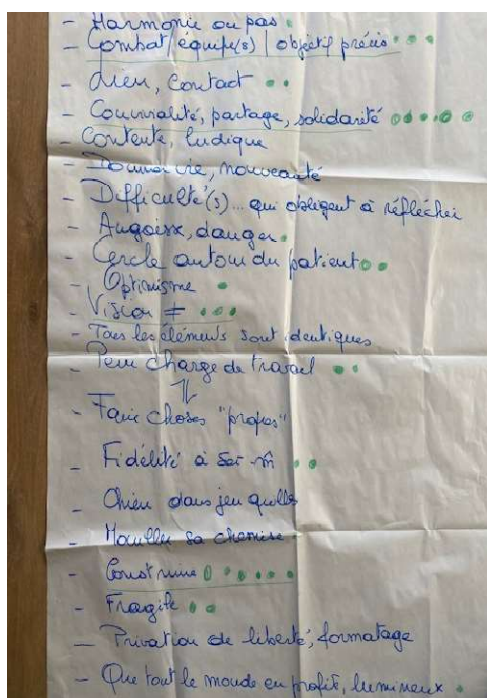 - Harmonie ou pas
- Combat / équipe(s) / objectif précis
- Lien, Contact
- Convivialité, partage, solidarité
- Contente, ludique
- Donner vie, nouveauté
- Difficulté(s)... qui obligent à réfléchir
- Angoisse, danger
- Cercle autour du patient
- Optimisme
- Vision ≠
- Tous les éléments sont identiques
- Peur charge de travail
- Faire choses "propres"
- Fidélité à soi-m̂
- Chien dans jeu quilles
- Mouiller sa chemise
- Construire
- Fragile
- Privation de liberté, formatage
- Que tout le monde en profit, lumineux